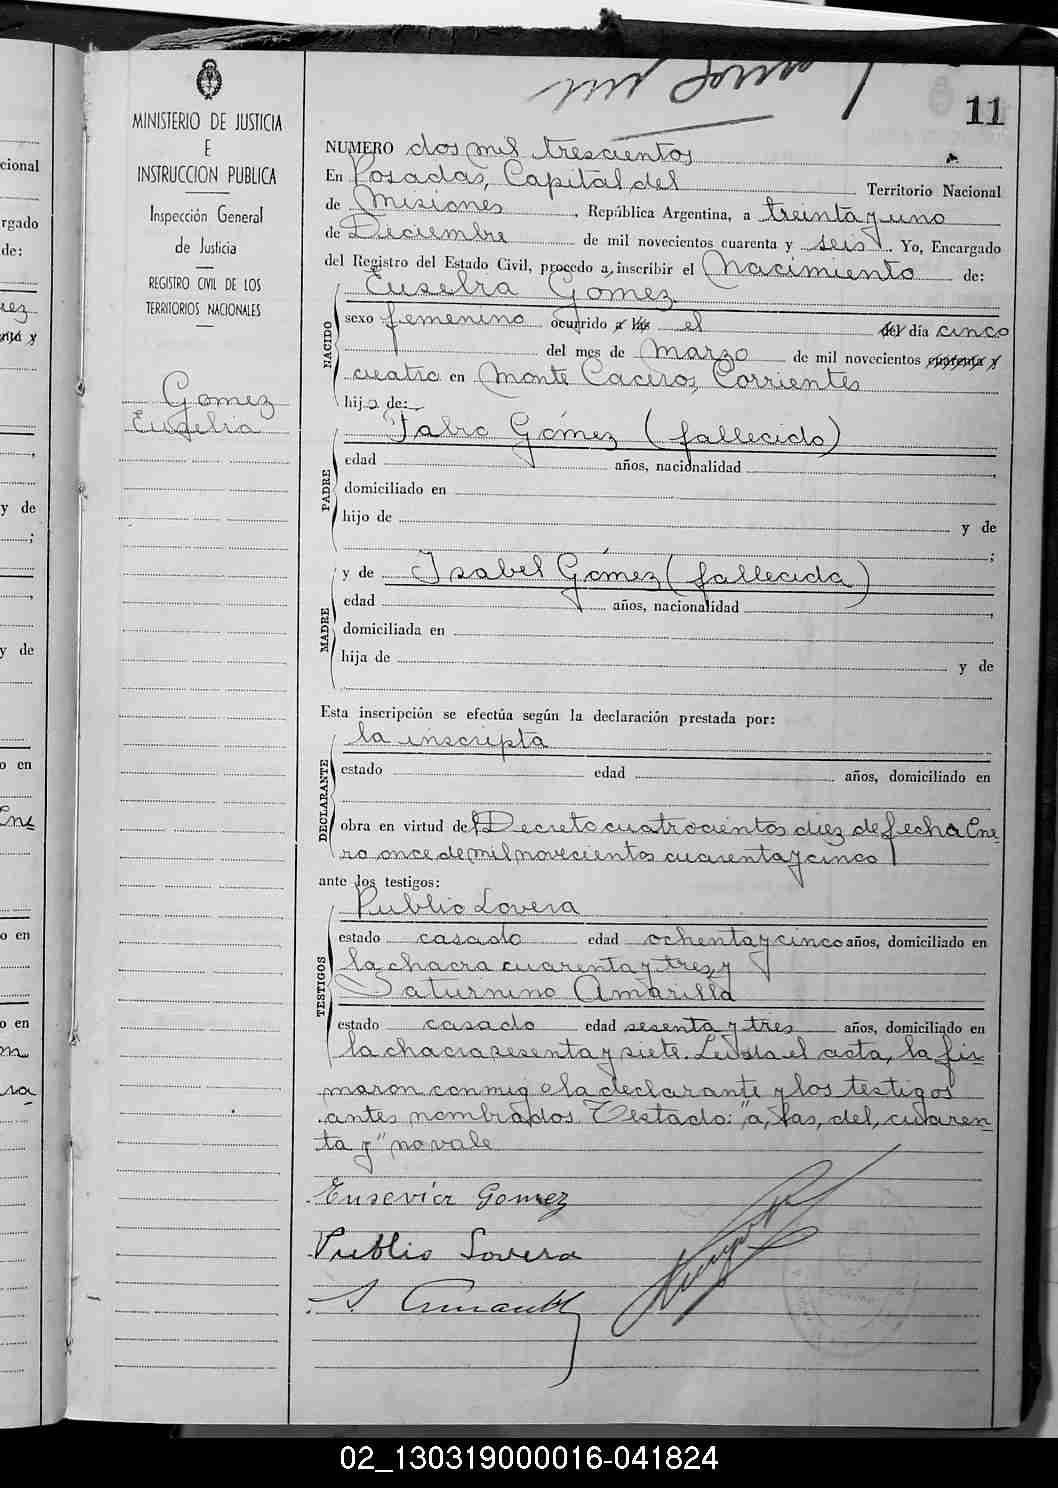 11
MINISTERIO DE JUSTICIA
E
INSTRUCCION PUBLICA
Inspección General
de Justicia
REGISTRO CIVIL DE LOS
TERRITORIOS NACIONALES
Gomez
Euselia
NUMERO dos mil trescientos
En Posadas, Capital del Territorio Nacional
de Misiones, República Argentina, a treinta y uno
de Deciembre de mil novecientos cuarenta y seis. Yo, Encargado
del Registro del Estado Civil, procedo a inscribir el Nacimiento de:
Euselia Gomez
NACIDO
sexo femenino ocurrido a las el del día cinco
del mes de Marzo de mil novecientos cuarenta y
cuatro en Monte Caceros, Corrientes
hija de:
PADRE
Fabio Gómez (fallecido)
edad años, nacionalidad ,
domiciliado en
hijo de y de
;
MADRE
y de Isabel Gómez (fallecida)
edad años, nacionalidad ,
domiciliada en
hija de y de
Esta inscripción se efectúa según la declaración prestada por:
DECLARANTE
la inscripta
estado edad años, domiciliado en
obra en virtud del Decreto cuatrocientos diez de fecha Ene-
ro once de mil novecientos cuarenta y cinco
ante los testigos:
TESTIGOS
Publio Lovera
estado casado edad ochenta y cinco años, domiciliado en
la chacra cuarenta y tres, y
Saturnino Amarilla
estado casado edad sesenta y tres años, domiciliado en
la chacra sesenta y siete. Leida el acta, la fir-
maron conmigo la declarante y los testigos
antes nombrados. Testado: "a, las, del, cuaren-
ta y" no vale
Eusevia Gomez
Publio Lovera
02_130319000016-041824